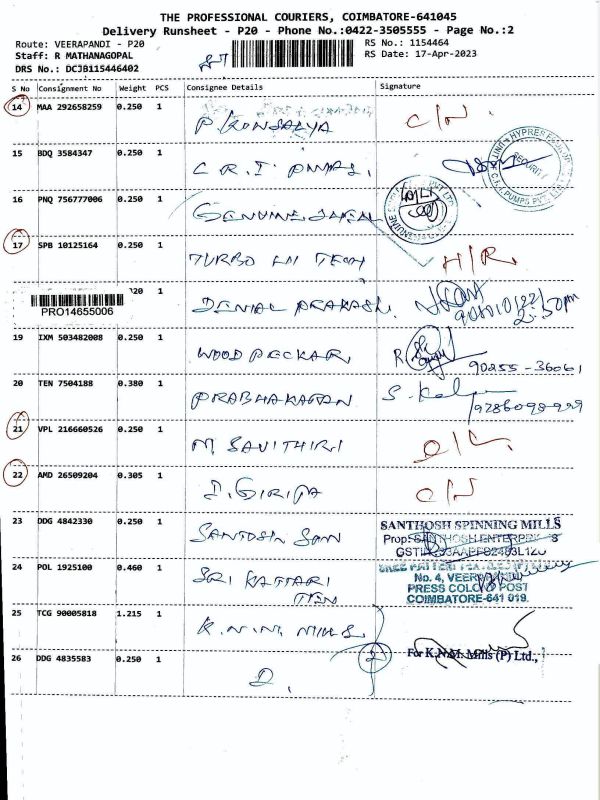 THE PROFESSIONAL COURIERS, COIMBATORE-641045
Delivery Runsheet - P20 - Phone No.:0422-3505555 - Page No.:2
Route: VEERAPANDI - P20
RS No.: 1154464
Staff: R MATHANAGOPAL
RS Date: 17-Apr-2023
DRS No.: DCJB115446402
S No Consignment No Weight PCS Consignee Details Signature
14 MAA 292658259 0.250 1
P. KONSALYA C/N.
15 BDQ 3584347 0.250 1
C.R.I. PUMPS. SECURITY C.R.I. PUMPS PVT. LTD.
16 PNQ 756777006 0.250 1
GENUINE
17 SPB 10125164 0.250 1
TURBO HI TECH H/R
PRO14655006 1
DENIAL PRAKASH. 2:30pm
19 IXM 503482008 0.250 1
WOOD PECKAR R 90255-36061
20 TEN 7504188 0.380 1
PRABHAKARAN
21 VPL 216660526 0.250 1
M. SAVITHIRI
22 AMD 26509204 0.305 1
C/N
23 DDG 4842330 0.250 1
SANTOSH SPN SANTHOSH SPINNING MILLS
24 POL 1925100 0.460 1
SRI KATTARI No. 4,
TEN PRESS COLONY POST
COIMBATORE-641 019.
25 TCG 90005818 1.215 1
K.N.M. MILLS
2 For K.N.M. Mills (P) Ltd.,
26 DDG 4835583 0.250 1
D.